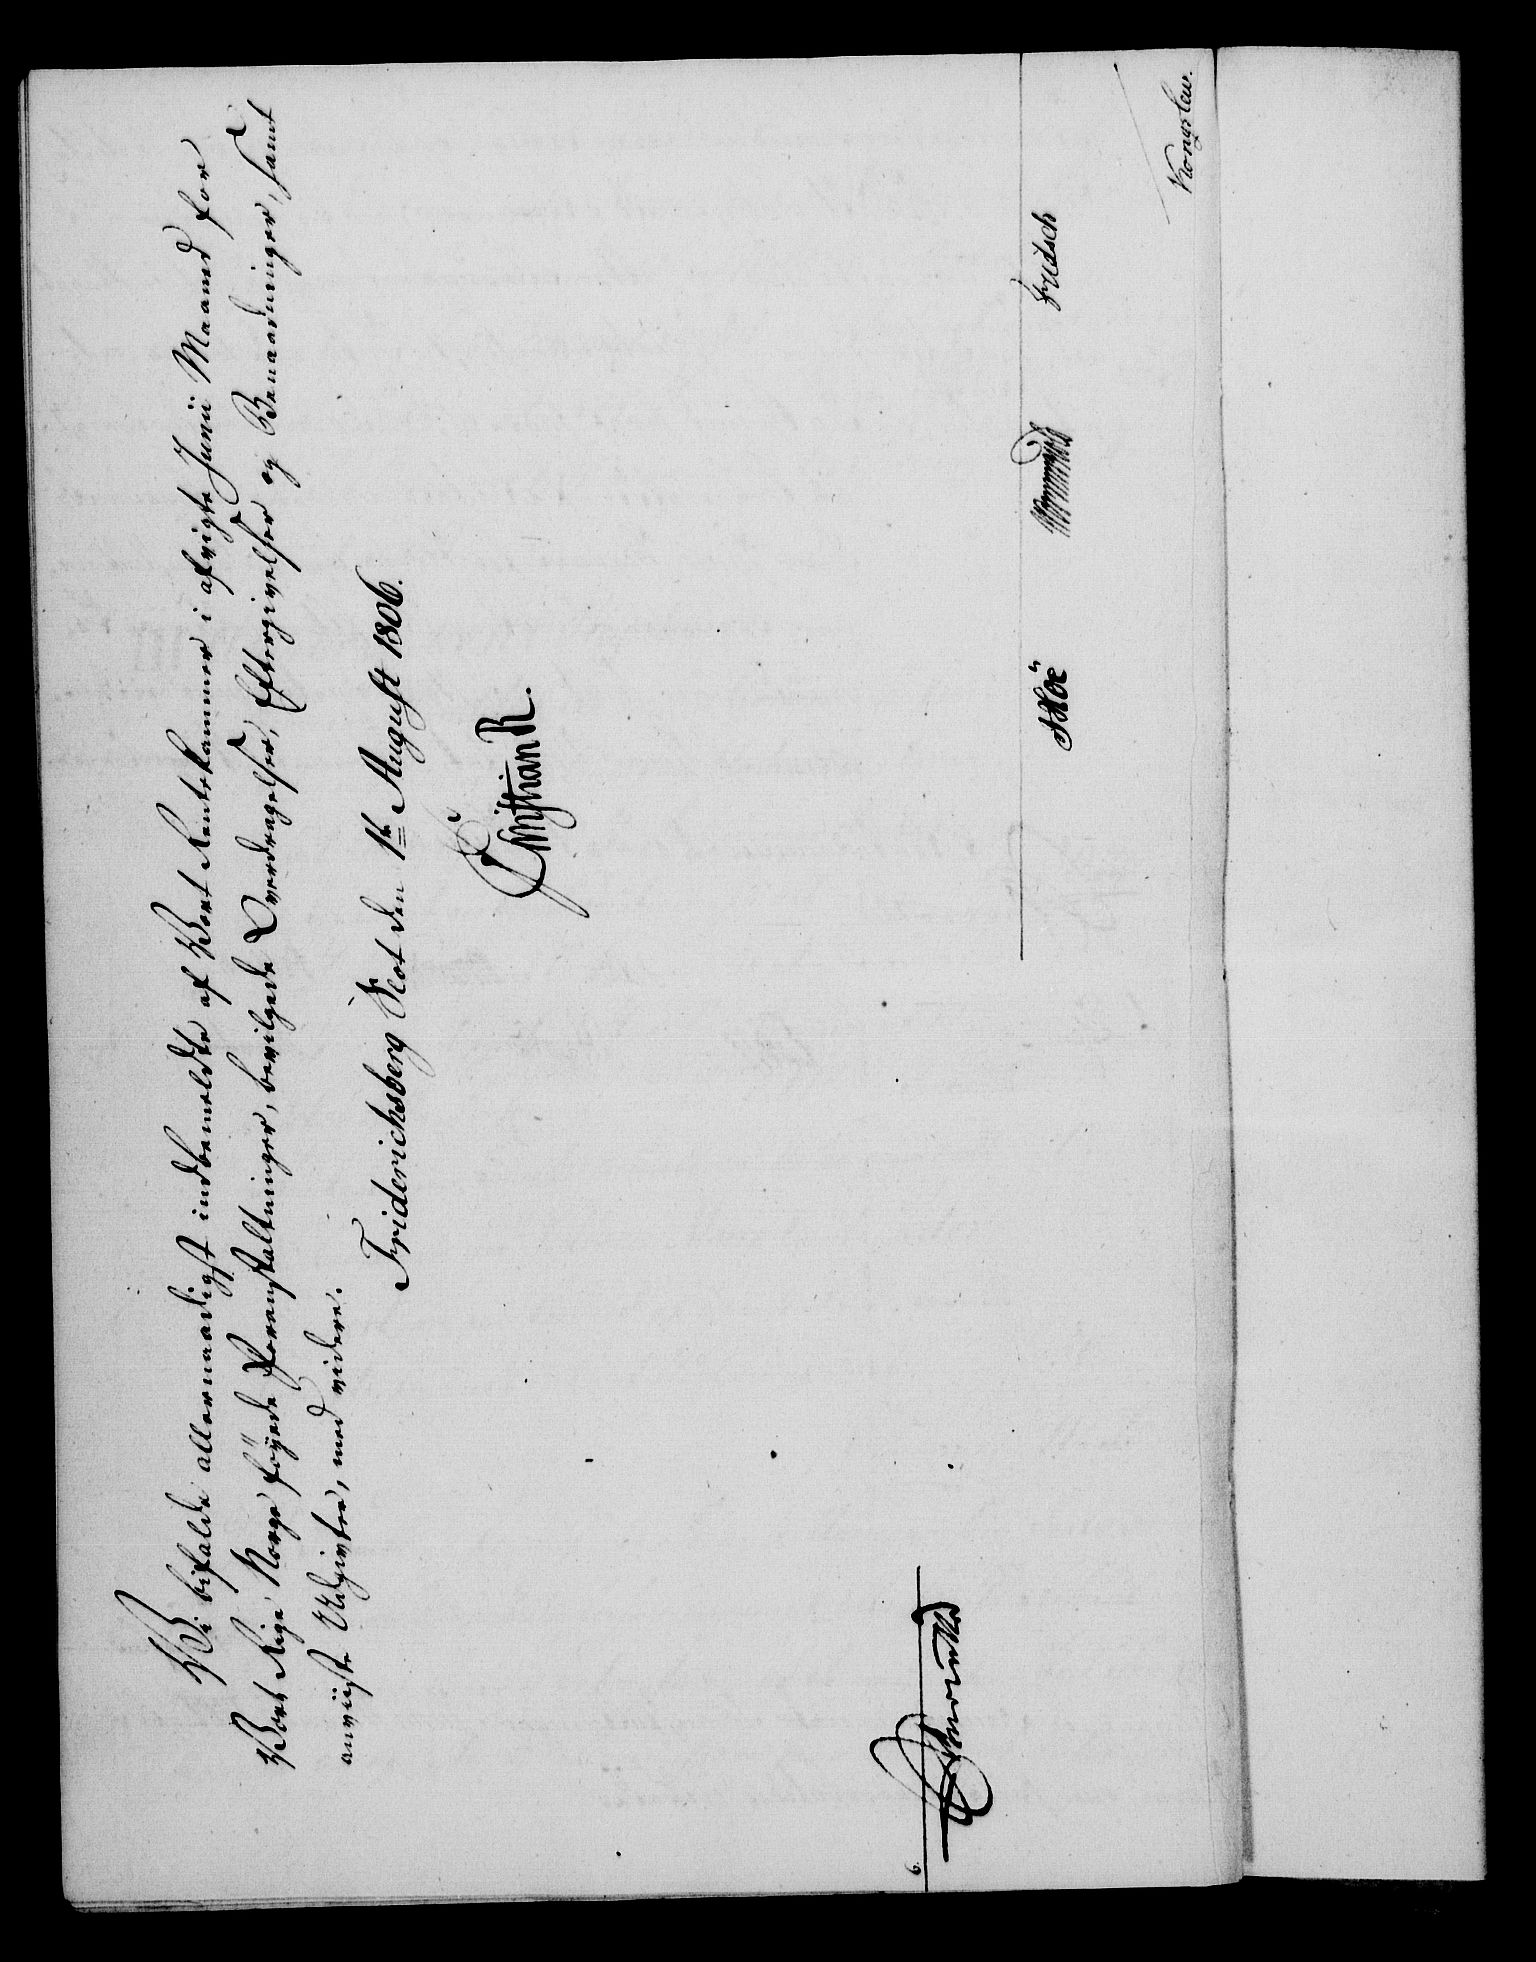 Vi bifalde allernaadigst indbemeldte af Vort Rentekammer i afvigte Junii Maaned for
Vort Rige Norge föyede Foranstaltninger, bevilgede Overdragelser, Eftergivelser og Benaadninger, samt
anviiste Udgivter, med videre.
Friderichsberg Slot den 1te August 1806.
Christian R.
6.
Höe
Fritsch
Kongslew.